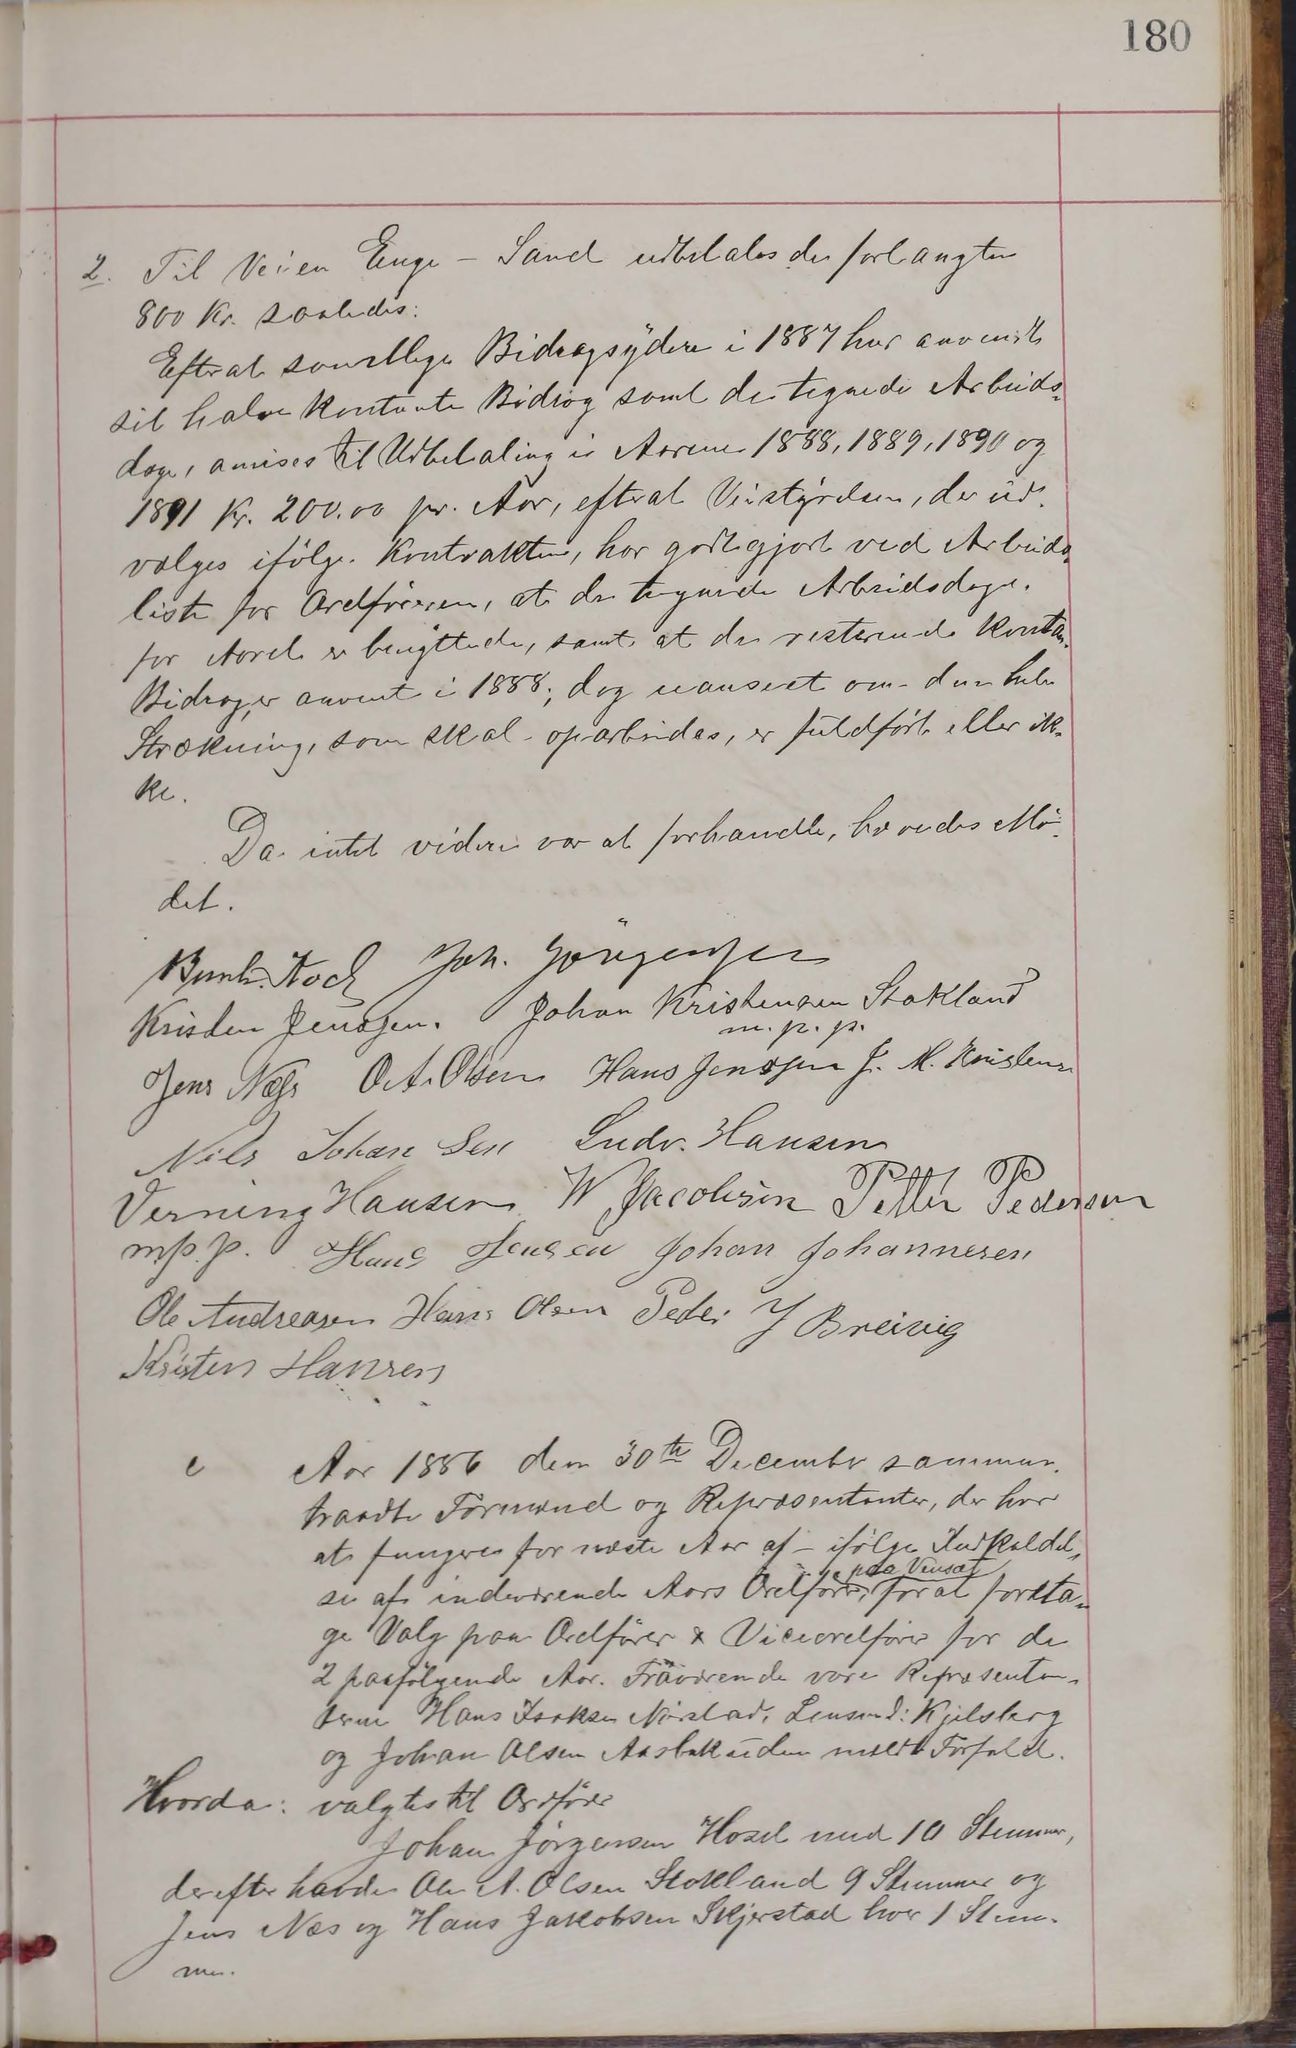 180
2. Til Veien Enge - Sand udbetales de forlangte
800 Kr. saaledes:
Efterat samtlige Bidragsydere i 1887 har anvendt
sit halve Kontante Bidrag samt de tegnede Arbeids-
dage, anvises til Udbetaling i Aarene 1888, 1889, 1890 og
1891 Kr. 200.00 pr. Aar, efterat Veistyrelsen, der ud-
vælges ifølge Kontrakten, har godtgjort ved Arbeids-
liste for Ordføreren, at de tegnede Arbeidsdage
for Aaret er benyttede, samt at de resterende Kontan-
Bidrag er anvent i 1888; dog uanseet om den hele
Strækning, som skal oparbeides, er fuldført eller ik-
ke.
Da intet videre var at forhandle, hævedes Mø-
det.
Bernh. Koch Joh. Jörgensen
Kristen Jenssen. Johan Kristensen Stokland
m. p. p.
Jens Næss O. A. Olsen Hans Jenssen J. M. Kristensen
Nils Johan Sen Ludv. Hansen
Verning Hansen W Jacobsen Petter Pedersen
m.p.p. Hans Jensen Johan Johannesen
Ole Andreasen Hans Olsen Peder J Breivig
Kristen Hansen
Aar 1886 den 30te December sammen-
traadte Formænd og Repræsentanter, der har
at fungere for næste Aar af - ifølge Indkaldel-
paa Vensæt
se af indeværende Aars Ordfører, for at foreta-
ge Valg paa Ordfører & Viceordfører for de
2 paafølgende Aar. Fraværende vare Repræsentan-
terne Hans Isaksen Nørstad, Lensmd: Kjelsberg
og Johan Olsen Aasbak uden meldt Forfald.
Hvorda: valgtes til Ordfører
Johan Jørgensen Hosel med 10 Stemmer,
derefter havde Ole A. Olsen Stokland 9 Stemmer og
Jens Næs og Hans Jakobsen Skjerstad hver 1 Stem-
me.